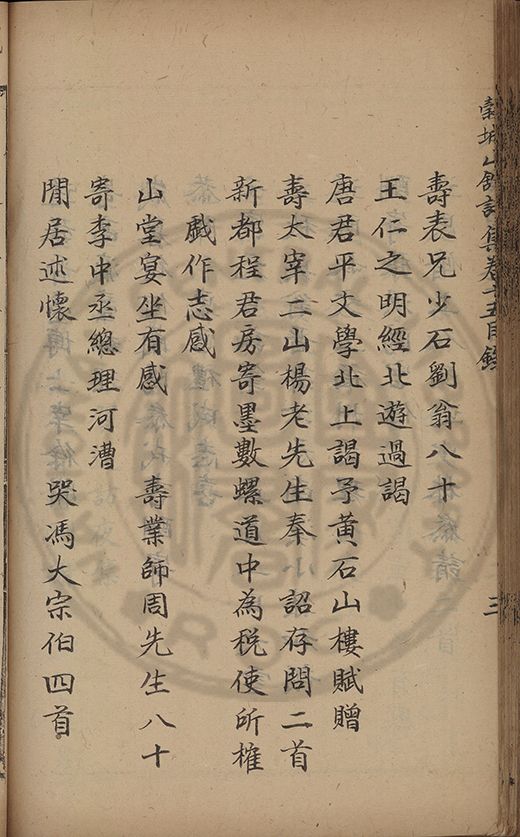 穀城山館詩集卷十五目錄
三
壽表兄少石劉翁八十
王仁之明經北遊過謁
唐君平文學北上謁予黃石山樓賦贈
壽太宰二山楊老先生奉小詔存問二首
新都程君房寄墨數螺道中為稅使所榷
戲作志感
山堂宴坐有感 壽業師周先生八十
寄李中丞總理河漕
閒居述懷 哭馮大宗伯四首